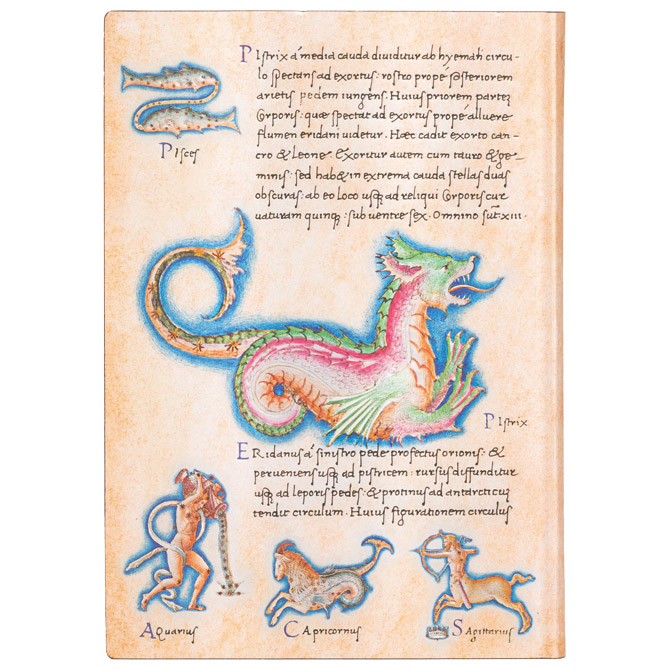 PIstrix á media cauda diuiditur ab hyemali circu-
lo spectans ad exortus: rostro propé posteriorem
arietis pedem iungens. Huius priorem partem
Corporis: quæ spectat ad exortus propé alluere
flumen eridani uidetur. Hæc cadit exorto can-
cro & Leone. Exoritur autem cum tauro & ge-
minis: sed hab& in extrema cauda stellas duas
obscuras: ab eo loco usq; ad reliqui Corporis cur
uaturam quinq;: sub uentre sex. Omnino sūt xiii.
PIsces
PIstrix
ERidanus á sinistro pede profectus orionis: &
perueniens usq; ad pistricem: rursus diffunditur
usq; ad leporis pedes: & protinus ad antarcticū
tendit circulum. Huius figurationem circulus
AQuarius
CApricornus
SAgittarius